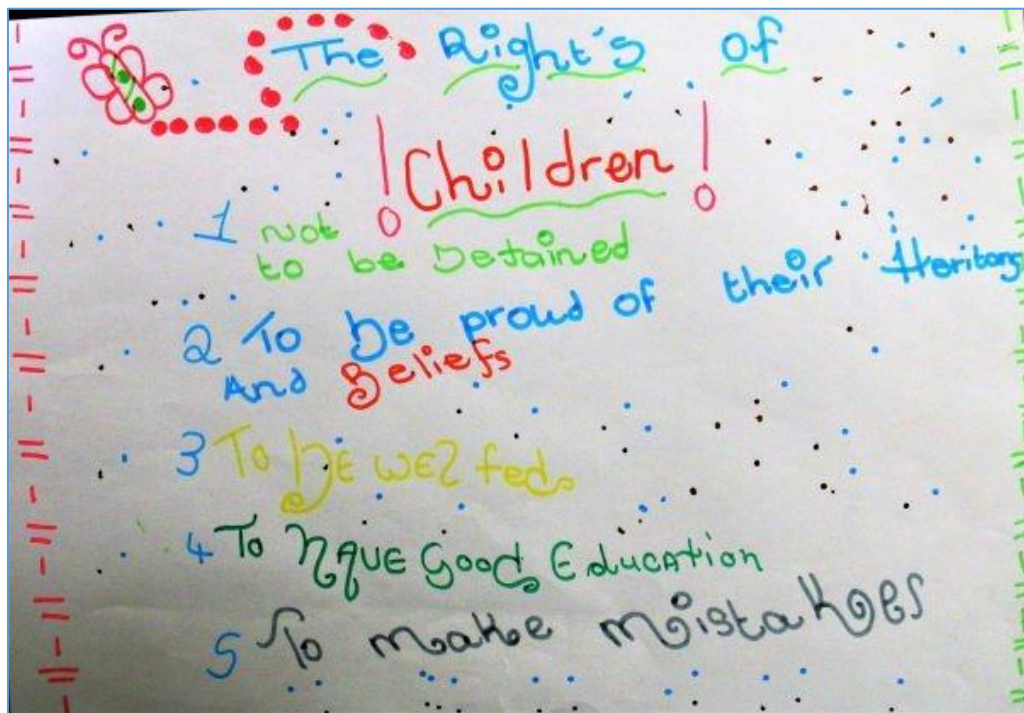 The Right's of
! Children !
1 Not
to be Detained
2 To be proud of their Heritang
And Beliefs
3 To be well fed
4 To Have Good Education
5 To make mistakes